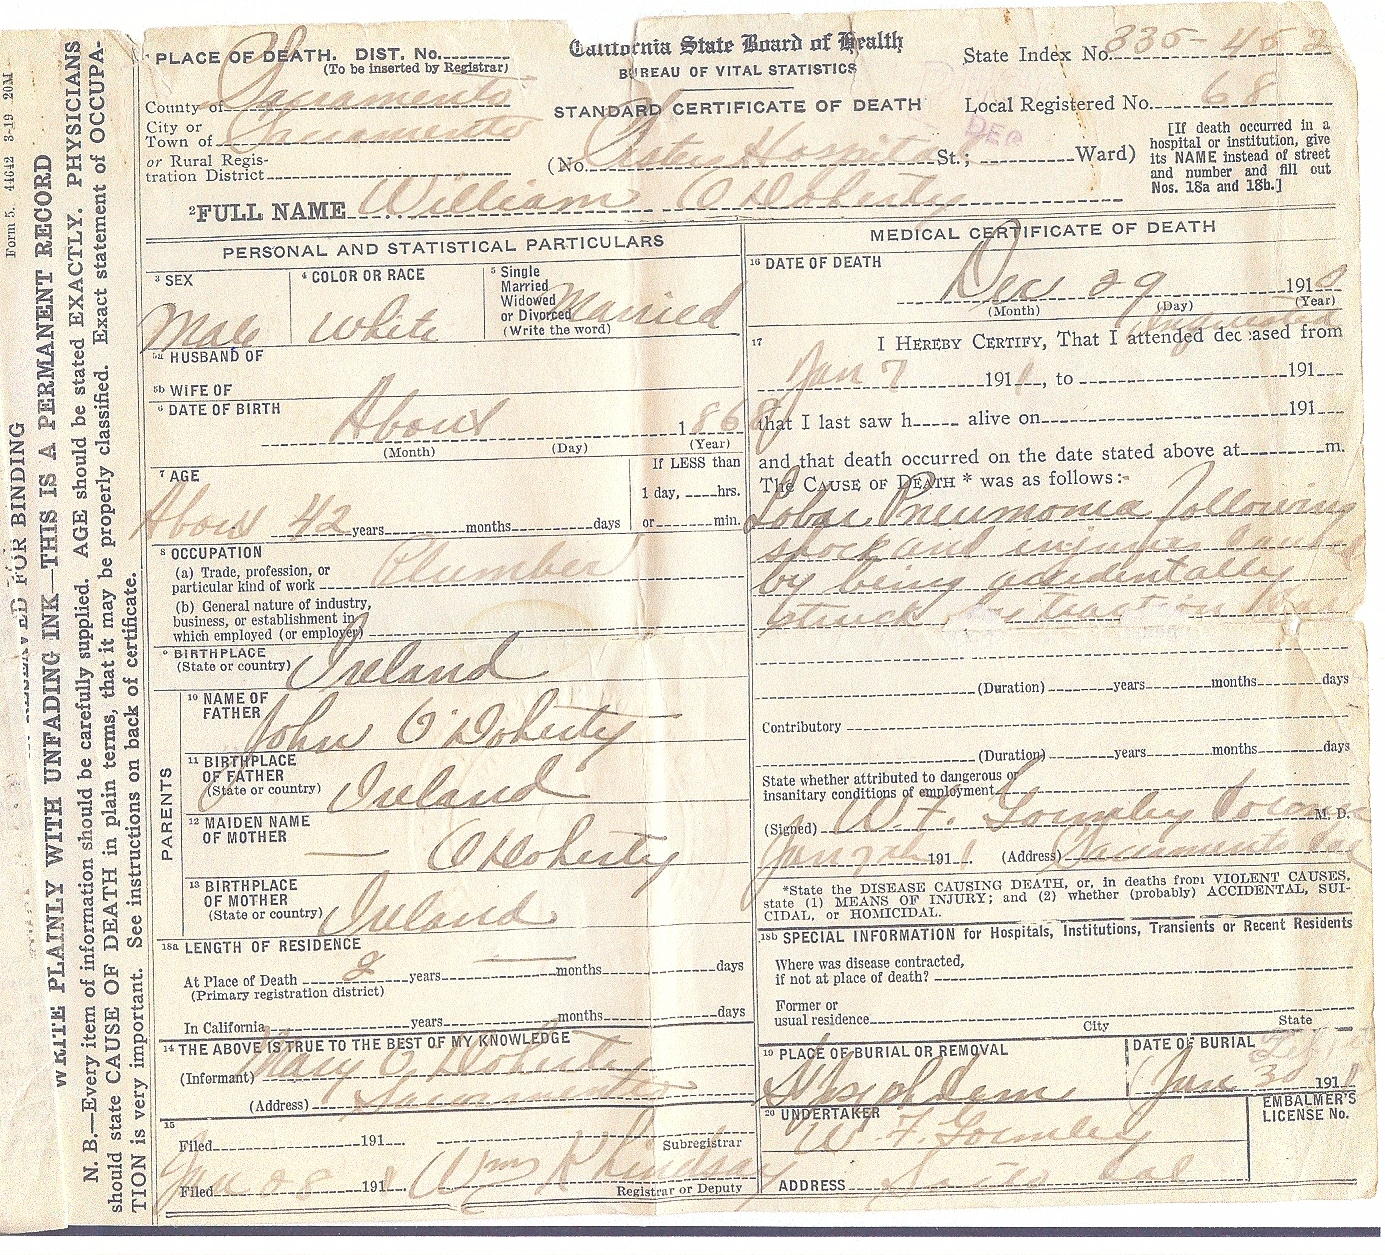 Form 5. 44642 3-19 20M
RESERVED FOR BINDING
WRITE PLAINLY WITH UNFADING INK—THIS IS A PERMANENT RECORD
N. B.—Every item of information should be carefully supplied. AGE should be stated EXACTLY. PHYSICIANS
should state CAUSE OF DEATH in plain terms, that it may be properly classified. Exact statement of OCCUPA-
TION is very important. See instructions on back of certificate.
1 PLACE OF DEATH. DIST. No.
(To be inserted by Registrar)
County of Sacramento
City or
Town of Sacramento
or Rural Regis-
tration District
California State Board of Health
BUREAU OF VITAL STATISTICS
STANDARD CERTIFICATE OF DEATH
(No. Sisters Hospital St.; Ward)
State Index No. 335-452
Local Registered No. 68
DEC
[If death occurred in a
hospital or institution, give
its NAME instead of street
and number and fill out
Nos. 18a and 18b.]
2 FULL NAME William O'Doherty
PERSONAL AND STATISTICAL PARTICULARS
3 SEX
Male
4 COLOR OR RACE
White
5 Single
Married
Widowed
or Divorced
(Write the word)
Married
5a HUSBAND OF
5b WIFE OF
6 DATE OF BIRTH
About 1868
(Month) (Day) (Year)
7 AGE
About 42 years months days
If LESS than
1 day, hrs.
or min.
8 OCCUPATION
(a) Trade, profession, or
particular kind of work Plumber
(b) General nature of industry,
business, or establishment in
which employed (or employer)
9 BIRTHPLACE
(State or country) Ireland
PARENTS
10 NAME OF
FATHER
John O'Doherty
11 BIRTHPLACE
OF FATHER
(State or country) Ireland
12 MAIDEN NAME
OF MOTHER
— O'Doherty
13 BIRTHPLACE
OF MOTHER
(State or country) Ireland
18a LENGTH OF RESIDENCE
At Place of Death 2 years — months days
(Primary registration district)
In California years months days
14 THE ABOVE IS TRUE TO THE BEST OF MY KNOWLEDGE
(Informant) Mary O'Doherty
(Address) Sacramento
15
Filed 191 Subregistrar
Filed Jan 28 1911 Wm K Lindsay
Registrar or Deputy
MEDICAL CERTIFICATE OF DEATH
16 DATE OF DEATH
Dec 29 1910
(Month) (Day) (Year)
17 I HEREBY CERTIFY, That I attended deceased from
Inquested
Jan 7 1911, to 191
that I last saw h alive on 191
and that death occurred on the date stated above at m.
The CAUSE OF DEATH * was as follows:-
Lobar Pneumonia following
shock and injuries caused
by being accidentally
struck by traction
(Duration) years months days
Contributory
(Duration) years months days
State whether attributed to dangerous or
insanitary conditions of employment
(Signed) W. F. Gormley Coroner M. D.
Jan 7th 1911. (Address) Sacramento Cal
*State the DISEASE CAUSING DEATH, or, in deaths from VIOLENT CAUSES,
state (1) MEANS OF INJURY; and (2) whether (probably) ACCIDENTAL, SUI-
CIDAL, or HOMICIDAL.
18b SPECIAL INFORMATION for Hospitals, Institutions, Transients or Recent Residents
Where was disease contracted,
if not at place of death?
Former or
usual residence
City State
19 PLACE OF BURIAL OR REMOVAL
St Joseph Cem
DATE OF BURIAL
Jan 3 1911
20 UNDERTAKER
W. F. Gormley
ADDRESS Sacto Cal
EMBALMER'S
LICENSE No.